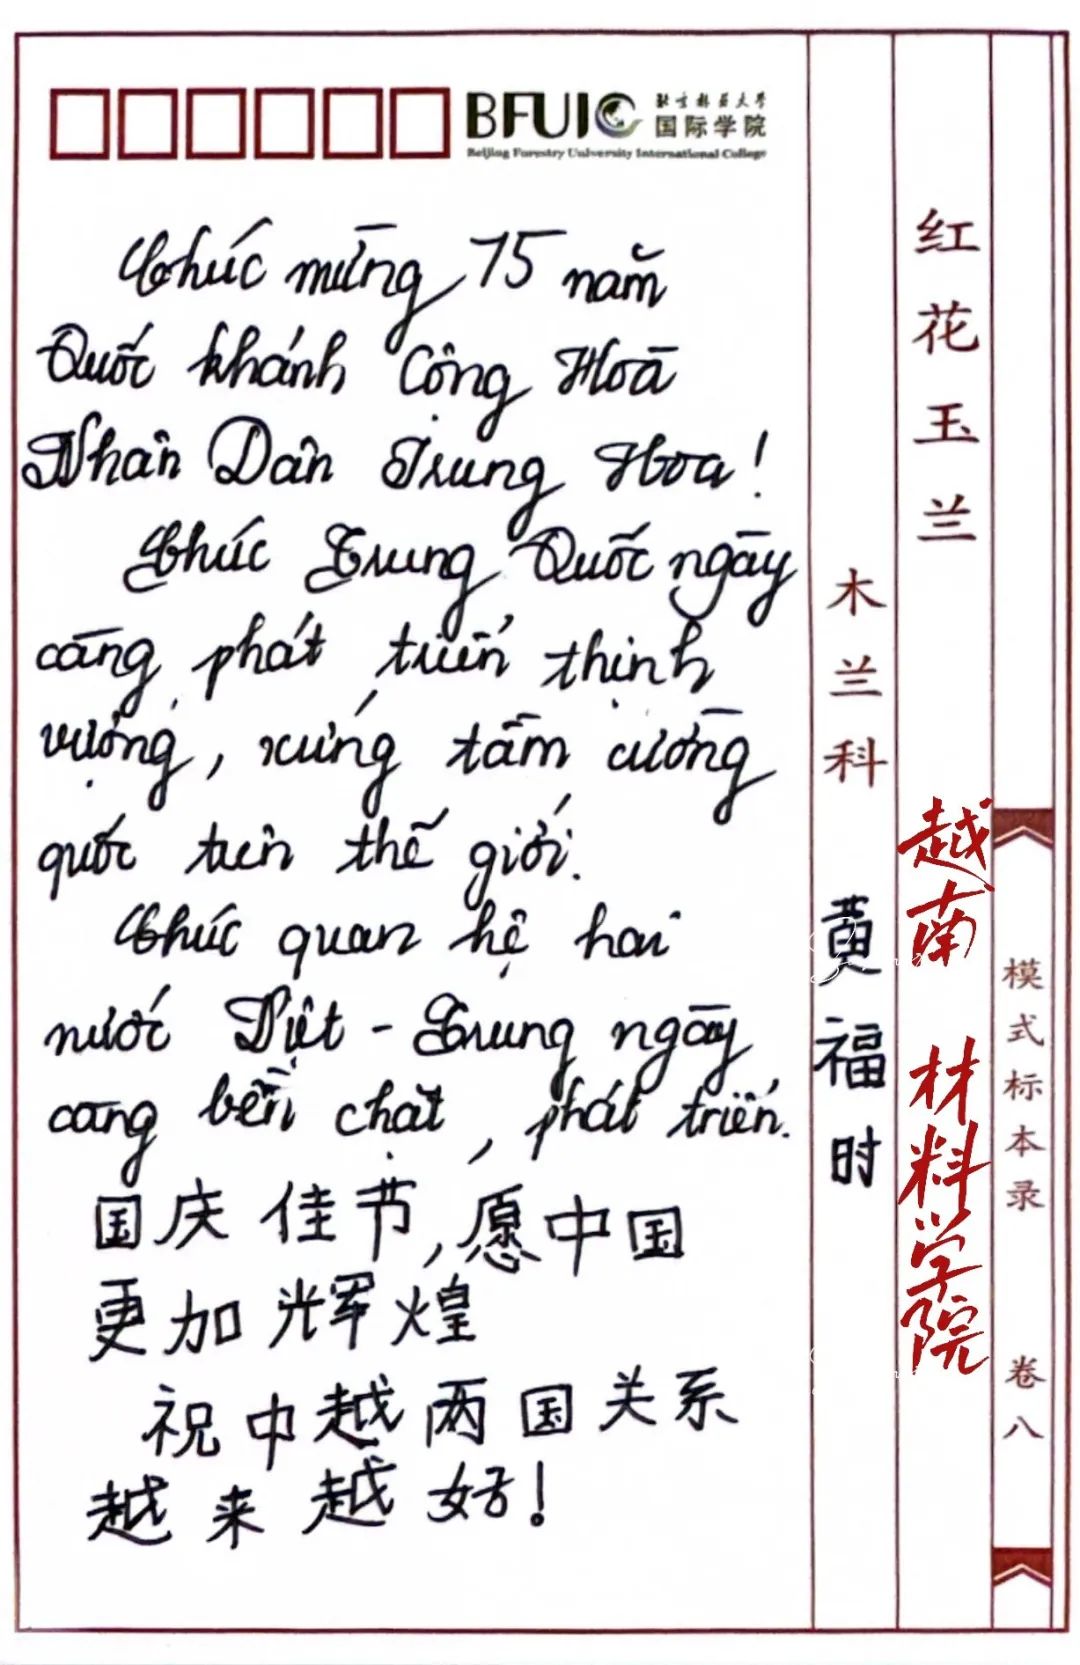 BFUIC
北京林业大学
国际学院
Beijing Forestry University International College
Chúc mừng 75 năm
Quốc khánh Cộng Hoà
Nhân Dân Trung Hoa!
Chúc Trung Quốc ngày
càng phát triển thịnh
vượng, xứng tầm cường
quốc trên thế giới.
Chúc quan hệ hai
nước Việt - Trung ngày
càng bền chặt, phát triển.
国庆佳节,愿中国
更加辉煌
祝中越两国关系
越来越好!
木兰科
黄福时
红花玉兰
越南 材料学院
模式标本录
卷八